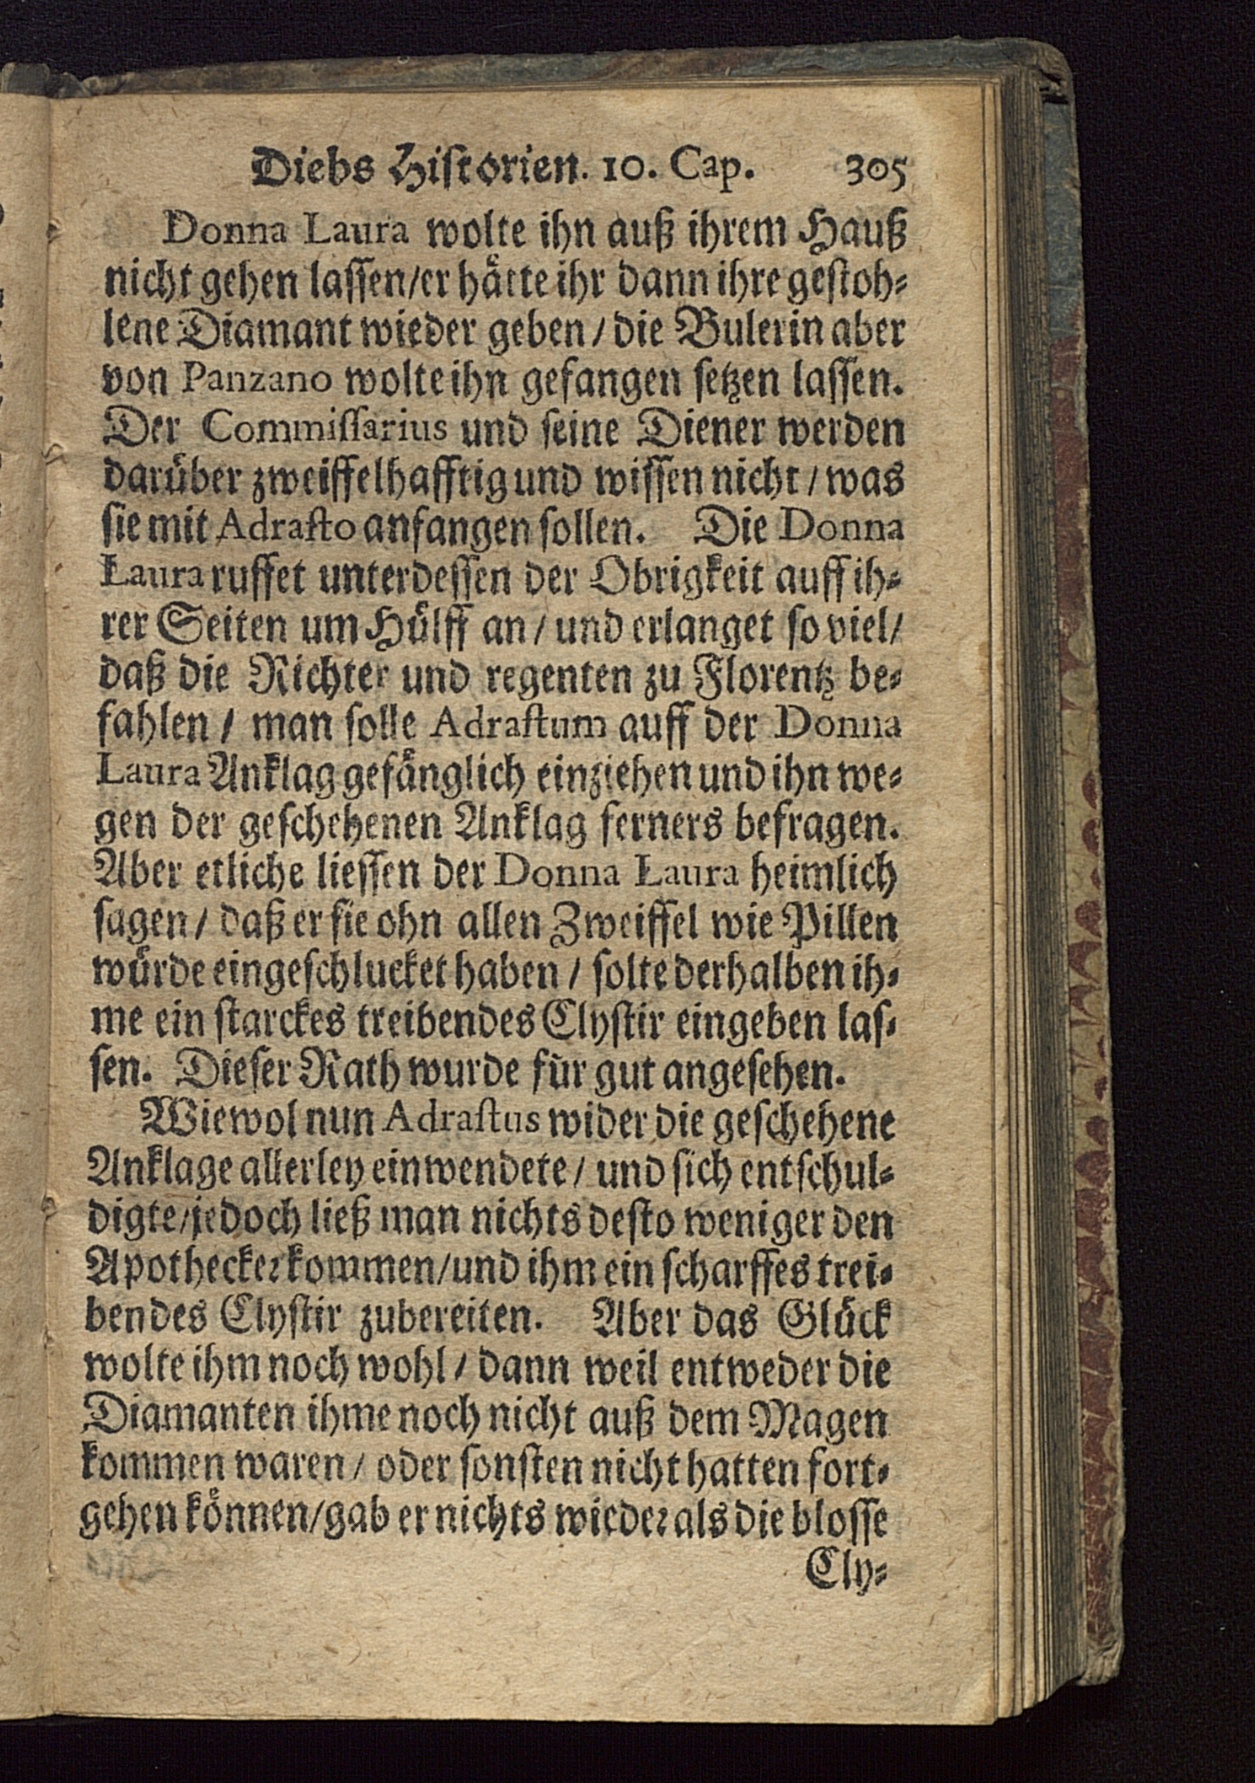 Diebs Historien. 10. Cap. 305
Donna Laura wolte ihn auß ihrem Hauß
nicht gehen lassen/er hätte ihr dann ihre gestoh-
lene Diamant wieder geben / die Bulerin aber
von Panzano wolte ihn gefangen setzen lassen.
Der Commissarius und seine Diener werden
darüber zweiffelhafftig und wissen nicht / was
sie mit Adrasto anfangen sollen. Die Donna
Laura ruffet unterdessen der Obrigkeit auff ih-
rer Seiten um Hülff an / und erlanget so viel/
daß die Richter und regenten zu Florentz be-
fahlen / man solle Adrastum auff der Donna
Laura Anklag gefänglich einziehen und ihn we-
gen der geschehenen Anklag ferners befragen.
Aber etliche liessen der Donna Laura heimlich
sagen / daß er sie ohn allen Zweiffel wie Pillen
würde eingeschlucket haben / solte derhalben ih-
me ein starckes treibendes Clystir eingeben las-
sen. Dieser Rath wurde für gut angesehen.
Wiewol nun Adrastus wider die geschehene
Anklage allerley einwendete / und sich entschul-
digte/jedoch ließ man nichts desto weniger den
Apothecker kommen/und ihm ein scharffes trei-
bendes Clystir zubereiten. Aber das Glück
wolte ihm noch wohl / dann weil entweder die
Diamanten ihme noch nicht auß dem Magen
kommen waren / oder sonsten nicht hatten fort-
gehen können/gab er nichts wieder als die blosse
Cly-